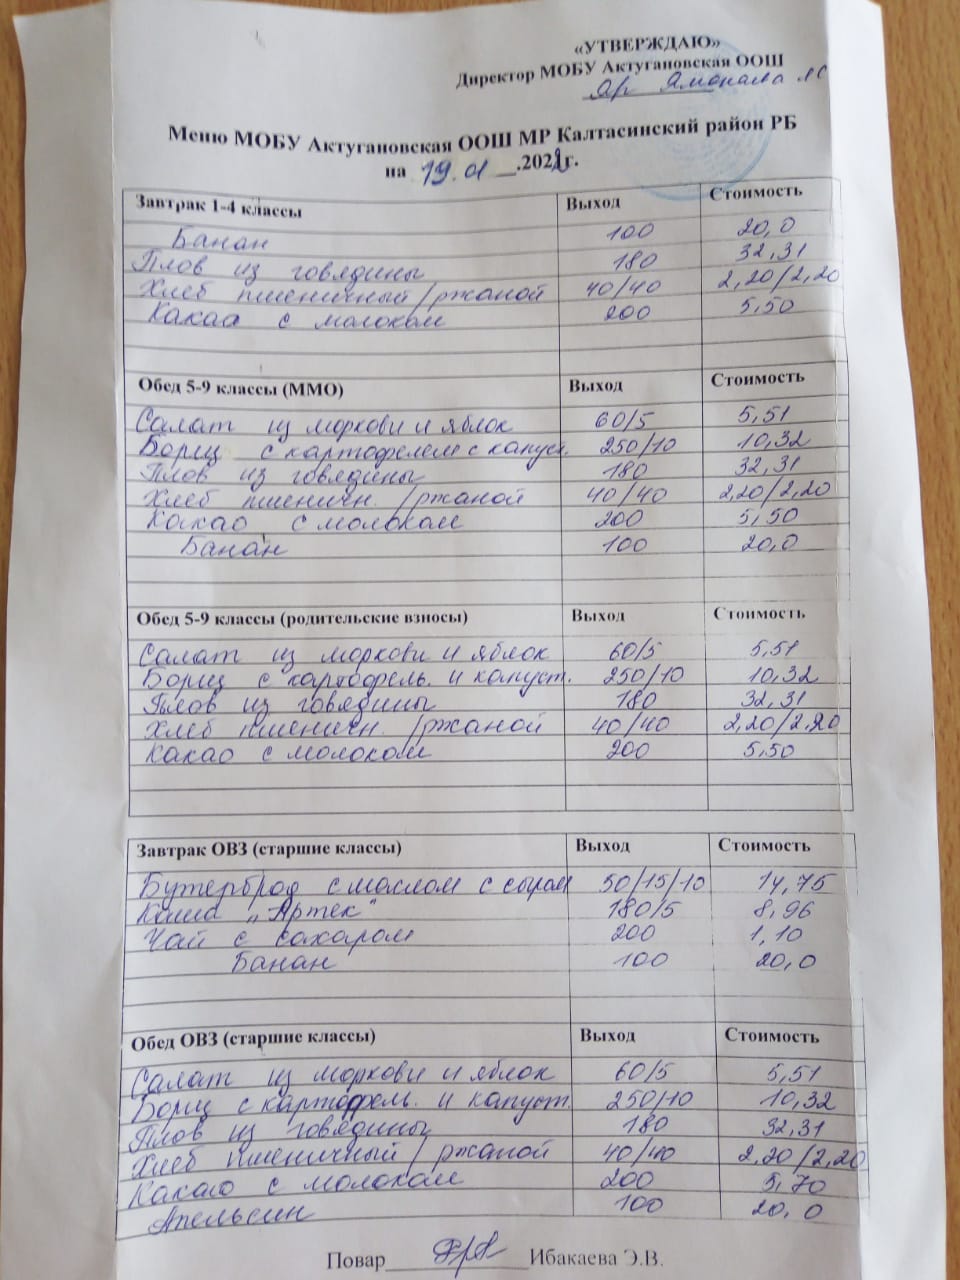 «УТВЕРЖДАЮ»
Директор МОБУ Актугановская ООШ
Меню МОБУ Актугановская ООШ МР Калтасинский район РБ
на 19.01 .2022г.
Завтрак 1-4 классы Выход Стоимость
Банан 100 20,0
Плов из говядины 180 32,31
Хлеб пшеничный/ржаной 40/40 2,20/2,20
Какао с молоком 200 5,50
Обед 5-9 классы (ММО) Выход Стоимость
Салат из моркови и яблок 60/5 5,51
Борщ с картофелем с капуст. 250/10 10,32
Плов из говядины 180 32,31
Хлеб пшеничн. /ржаной 40/40 2,20/2,20
Какао с молоком 200 5,50
Банан 100 20,0
Обед 5-9 классы (родительские взносы) Выход Стоимость
Салат из моркови и яблок 60/5 5,51
Борщ с картофель. и капуст. 250/10 10,32
Плов из говядины 180 32,31
Хлеб пшеничн. /ржаной 40/40 2,20/2,20
Какао с молоком 200 5,50
Завтрак ОВЗ (старшие классы) Выход Стоимость
Бутерброд с маслом с сыром 50/15/10 14,75
Каша „Артек" 180/5 8,96
Чай с сахаром 200 1,10
Банан 100 20,0
Обед ОВЗ (старшие классы) Выход Стоимость
Салат из моркови и яблок 60/5 5,51
Борщ с картофел. и капуст. 250/10 10,32
Плов из говядины 180 32,31
Хлеб пшеничный/ржаной 40/40 2,20/2,20
Какао с молоком 200 5,70
Апельсин 100 20,0
Повар Ибакаева Э.В.